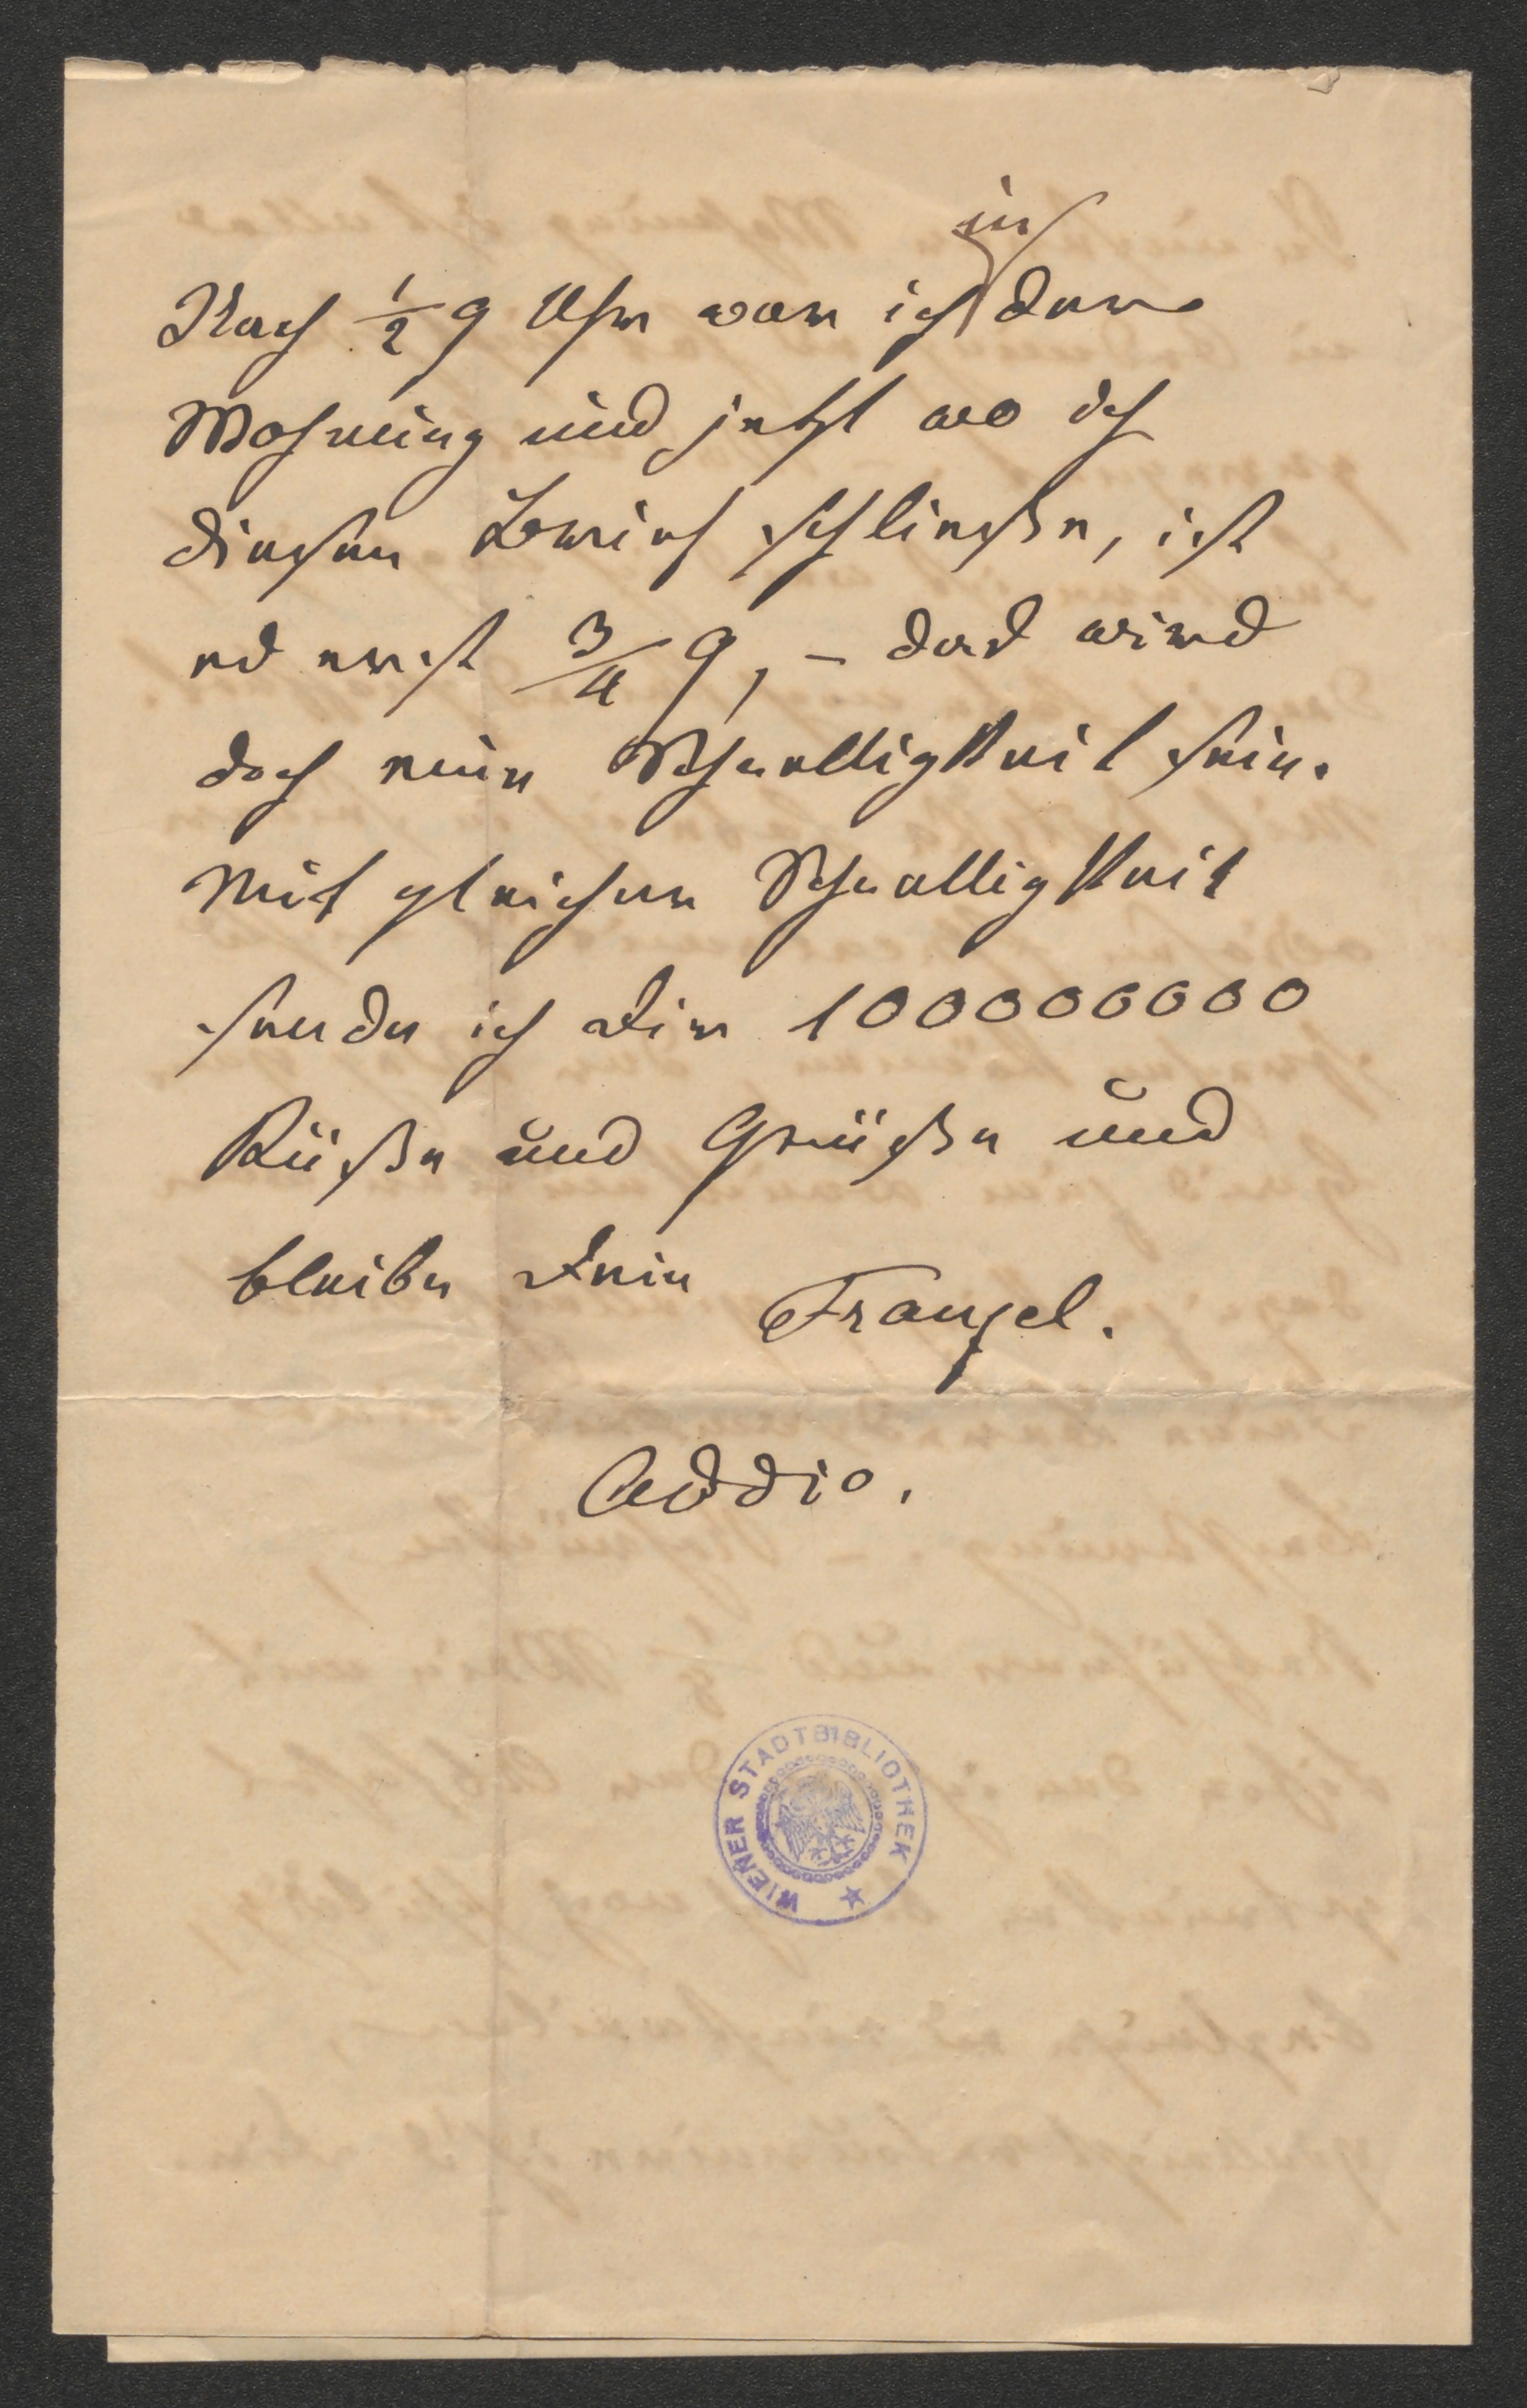 in
Nach ½ 9 Uhr war ich der
Wohnung und jetzt wo ich
diesen Brief schließe, ist
es erst ¾ 9, – das wird
doch eine Schnelligkeit sein.
Mit gleicher Schnelligkeit
sende ich Dir 100000000
Küße und Grüße und
bleibe Dein
Franzel.
Addio.
WIENER STADTBIBLIOTHEK